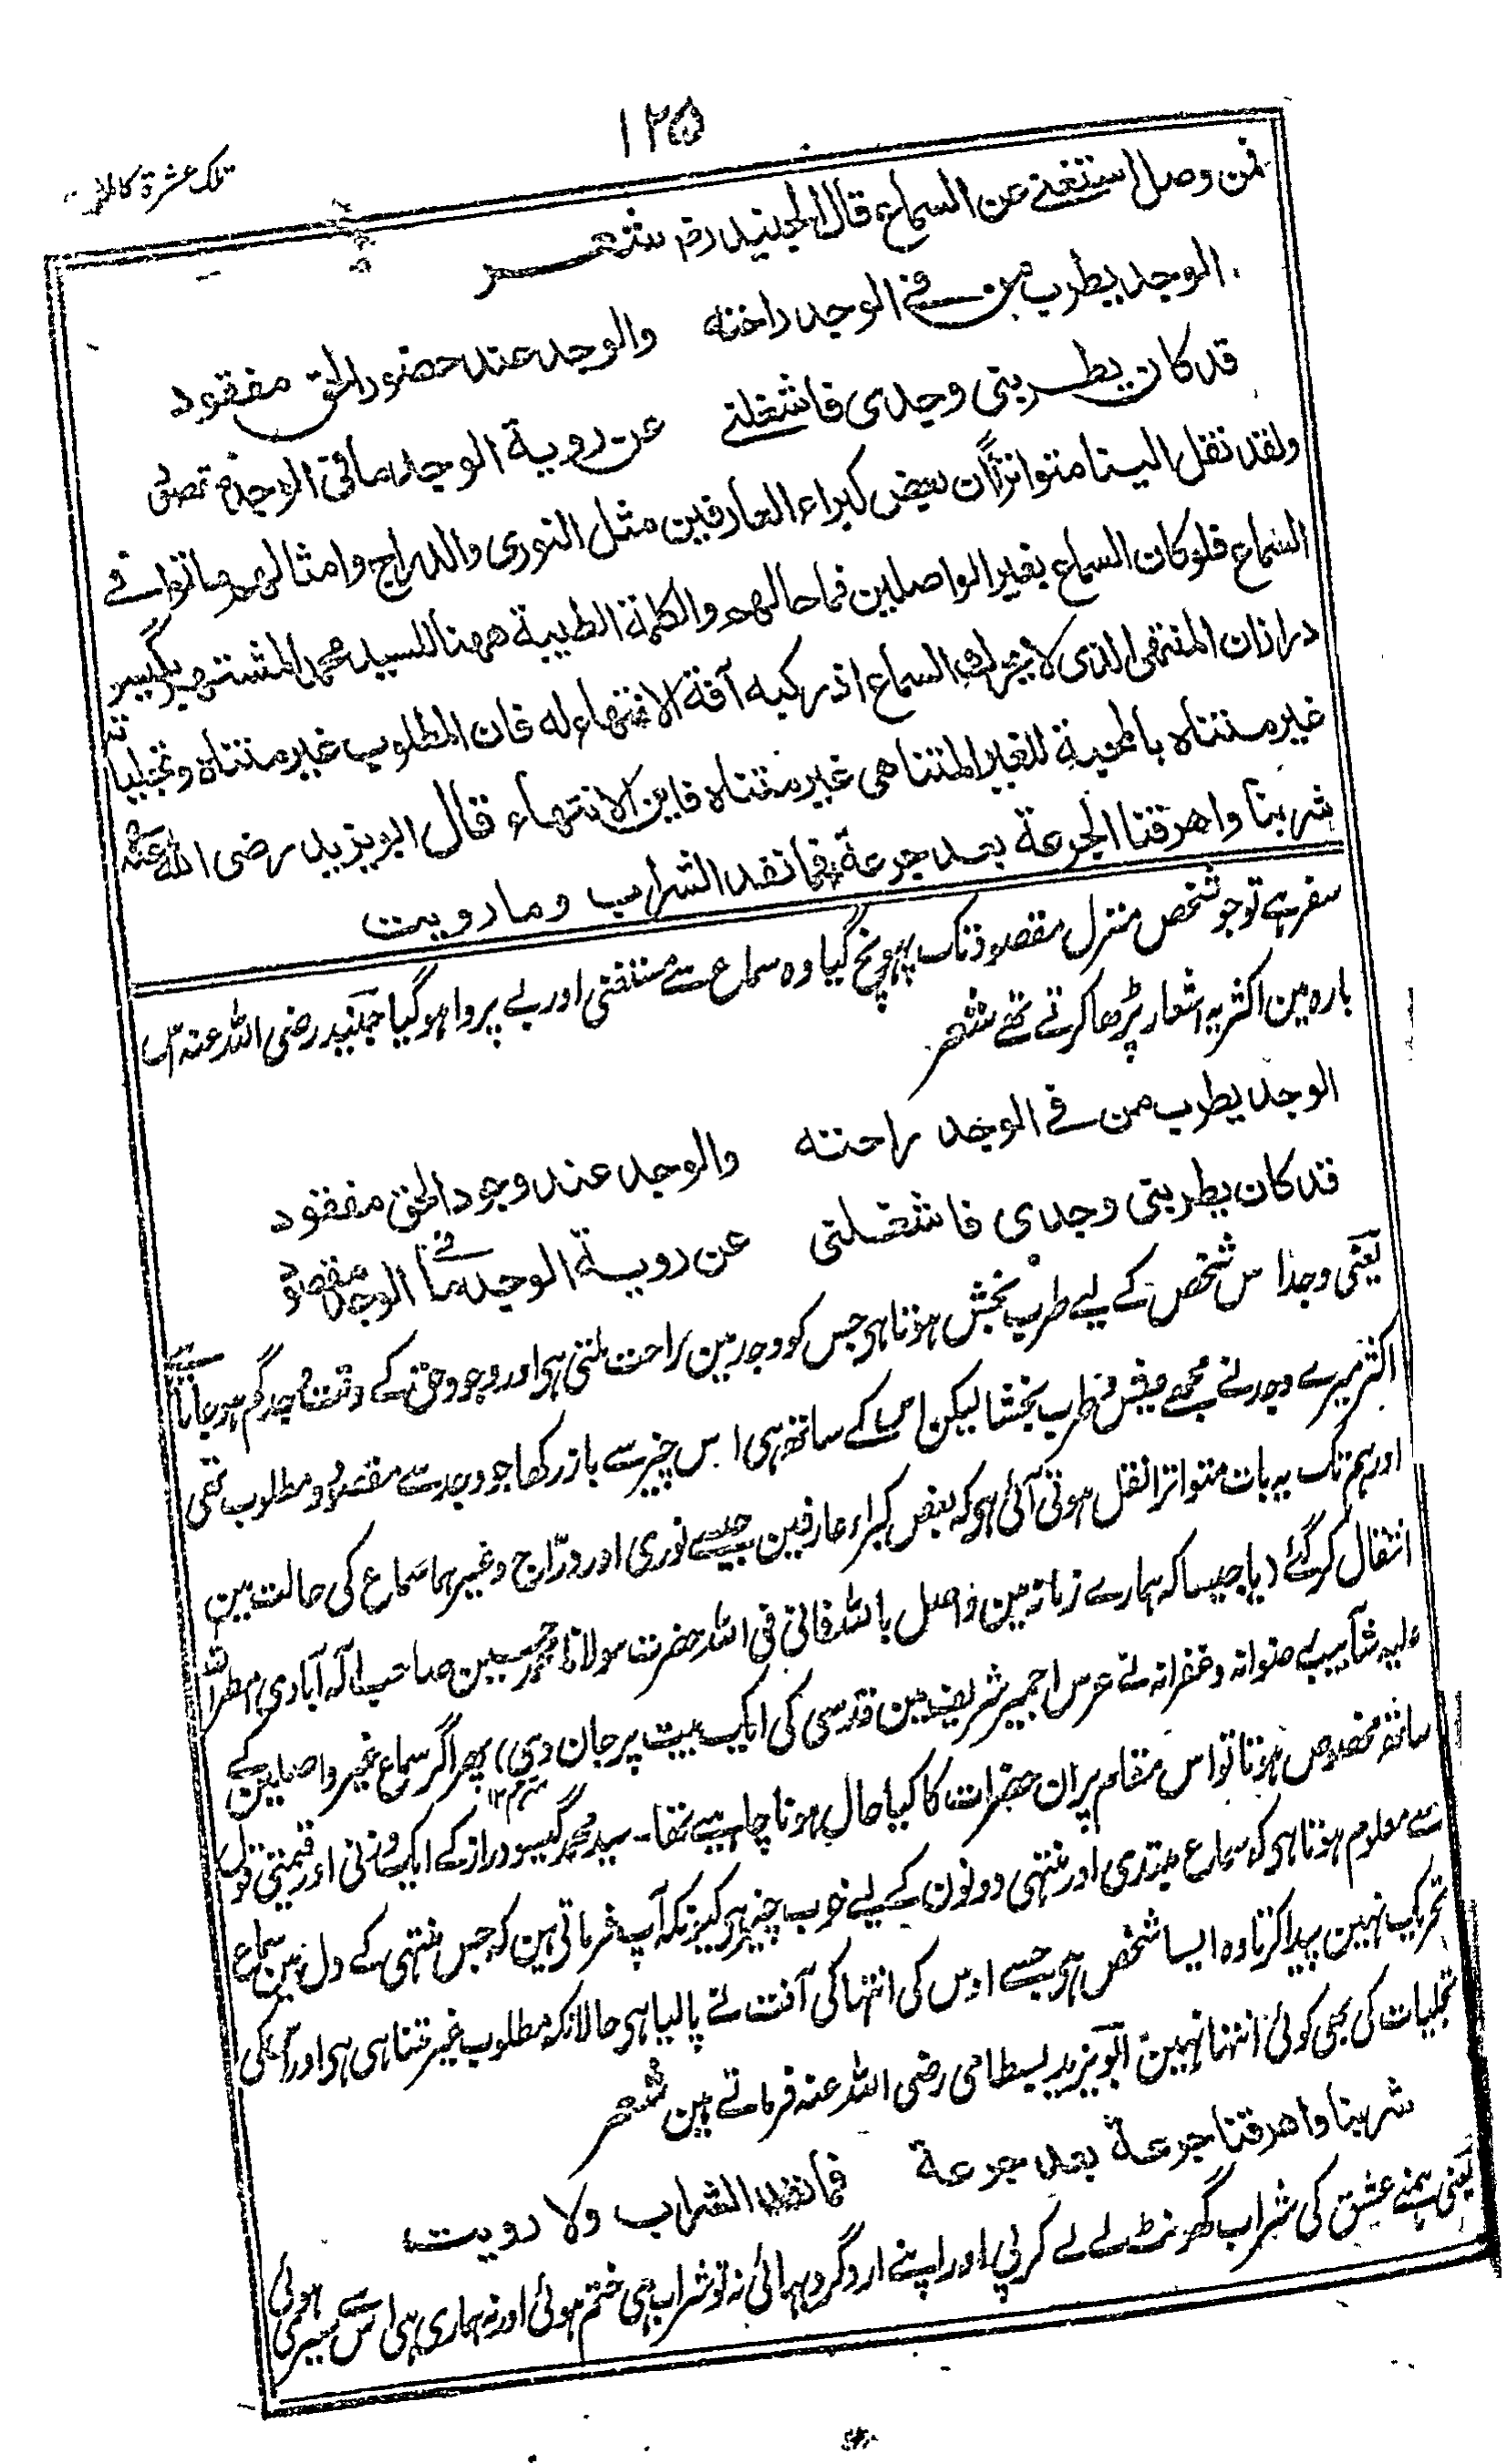 ۱۲۵
تلک عشرة کاملة
فمن وصل استغنے عن السماع قال الجنید رض شعر
الوجد یطرب من فے الوجد راحته والوجد عند حضور الحق مفقود
قد کان یطربنی وجدی فاشغلنے عن رویة الوجد مافی الوجد مقصود
ولقد نقل الینا متواتراً ان بعض کبراء العارفین مثل النوری والدراج وامثالهم ماتوا فے
السماع فلو کان السماع بغیر الواصلین فما حالهم والکلمة الطیبة ههنا للسید محمد المشتهر بگیسو
دراز ان المنتهی الذی لا یحرکه السماع اذ رکبه آفة الانتهاء له فان المطلوب غیر متناه وتجلیاته
غیر متناه بالمحبة للغیر المتناهی غیر متناه فاین الانتهاء قال ابو یزید رضی الله عنه
شربنا واهرقنا الجرعة بعد جرعة فما نفد الشراب وما رویت
سفر ہے تو جو شخص منزل مقصود تک پہونچ گیا وہ سماع سے مستغنی اور بے پروا ہوگیا جنید رضی اللہ عنہ اس
بارہ مین اکثر یہ اشعار پڑھا کرتے تھے شعر
الوجد یطرب من فے الوجد راحته والوجد عند وجود الحق مفقود
قد کان یطربنی وجدی فاشغلنی عن رویة الوجد ما فے الوجد مقصود
یعنی وجد اس شخص کے لیے طرب بخش ہوتا ہی جس کو وجد مین راحت ملتی ہی اور وجود حق کے وقت وجد گم ہو جاتا ہے
اکثر میرے وجد نے مجھے عیش و طرب بخشا لیکن اس کے ساتھ ہی اس چیز سے باز رکھا جو وجد سے مقصود و مطلوب تھی
اور ہم تک یہ بات متواتر انقل ہوتی آئی ہی کہ بعض کبراء عارفین جیسے نوری اور درّاج وغیرہما سماع کی حالت مین
انتقال کر گئے (یا جیسا کہ ہمارے زمانہ مین واصل باللہ فانی فی اللہ حضرت مولانا محمد حسین صاحب الہ آبادی امطر اللہ
علیہ شآبیب رضوانہ وغفرانہ نے عرس اجمیر شریف مین قدسی کی ایک بیت پر جان دی) پھر اگر سماع غیر واصلین کے
ساتھ مخصوص ہوتا تو اس مقام پر ان حضرات کا کیا حال ہونا چاہیے تھا۔ سید محمد گیسو دراز کے ایک وزنی اور قیمتی قول
سے معلوم ہوتا ہی کہ سماع مبتدی اور منتہی دونون کے لیے خوب چیز ہی کیونکہ آپ فرماتی ہین کہ جس منتہی کے دل مین سماع
تحریک نہین پیدا کرتا وہ ایسا شخص ہو جسے اوس کی انتہا کی آفت نے پا لیا ہی حالانکہ مطلوب غیر متناہی ہی اور اسکی
تجلیات کی بھی کوئی انتہا نہین ابو یزید بسطامی رضی اللہ عنہ فرماتے ہین شعر
شربنا واهرقنا جرعة بعد جرعة فما نفد الشراب ولا رویت
یعنی ہمنے عشق کی شراب گھونٹ لے لے کر پی اور اپنے اردگرد بہائی نہ تو شراب ہی ختم ہوئی اور نہ ہماری ہی اس سے سیری ہوئی